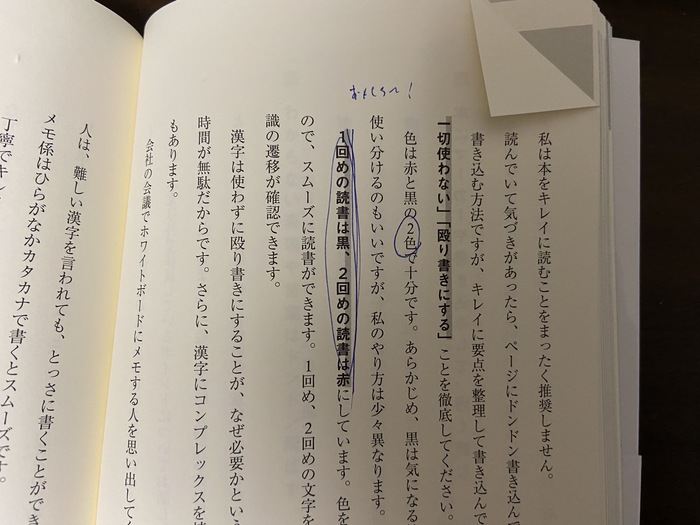 おもしろい!
私は本をキレイに読むことをまったく推奨しません。
読んでいて気づきがあったら、ページにドンドン書き込ん
書き込む方法ですが、キレイに要点を整理して書き込んで
一切使わない」「殴り書きにする」ことを徹底してください。
色は赤と黒の2色で十分です。あらかじめ、黒は気になる
使い分けるのもいいですが、私のやり方は少々異なります。
1回めの読書は黒、2回めの読書は赤にしています。色を
ので、スムーズに読書ができます。1回め、2回めの文字を
識の遷移が確認できます。
漢字は使わずに殴り書きにすることが、なぜ必要かという
時間が無駄だからです。さらに、漢字にコンプレックスを
もあります。
会社の会議でホワイトボードにメモする人を思い出して
人は、難しい漢字を言われても、とっさに書くことができ
メモ係はひらがなかカタカナで書くとスムーズです。
丁寧でキレ